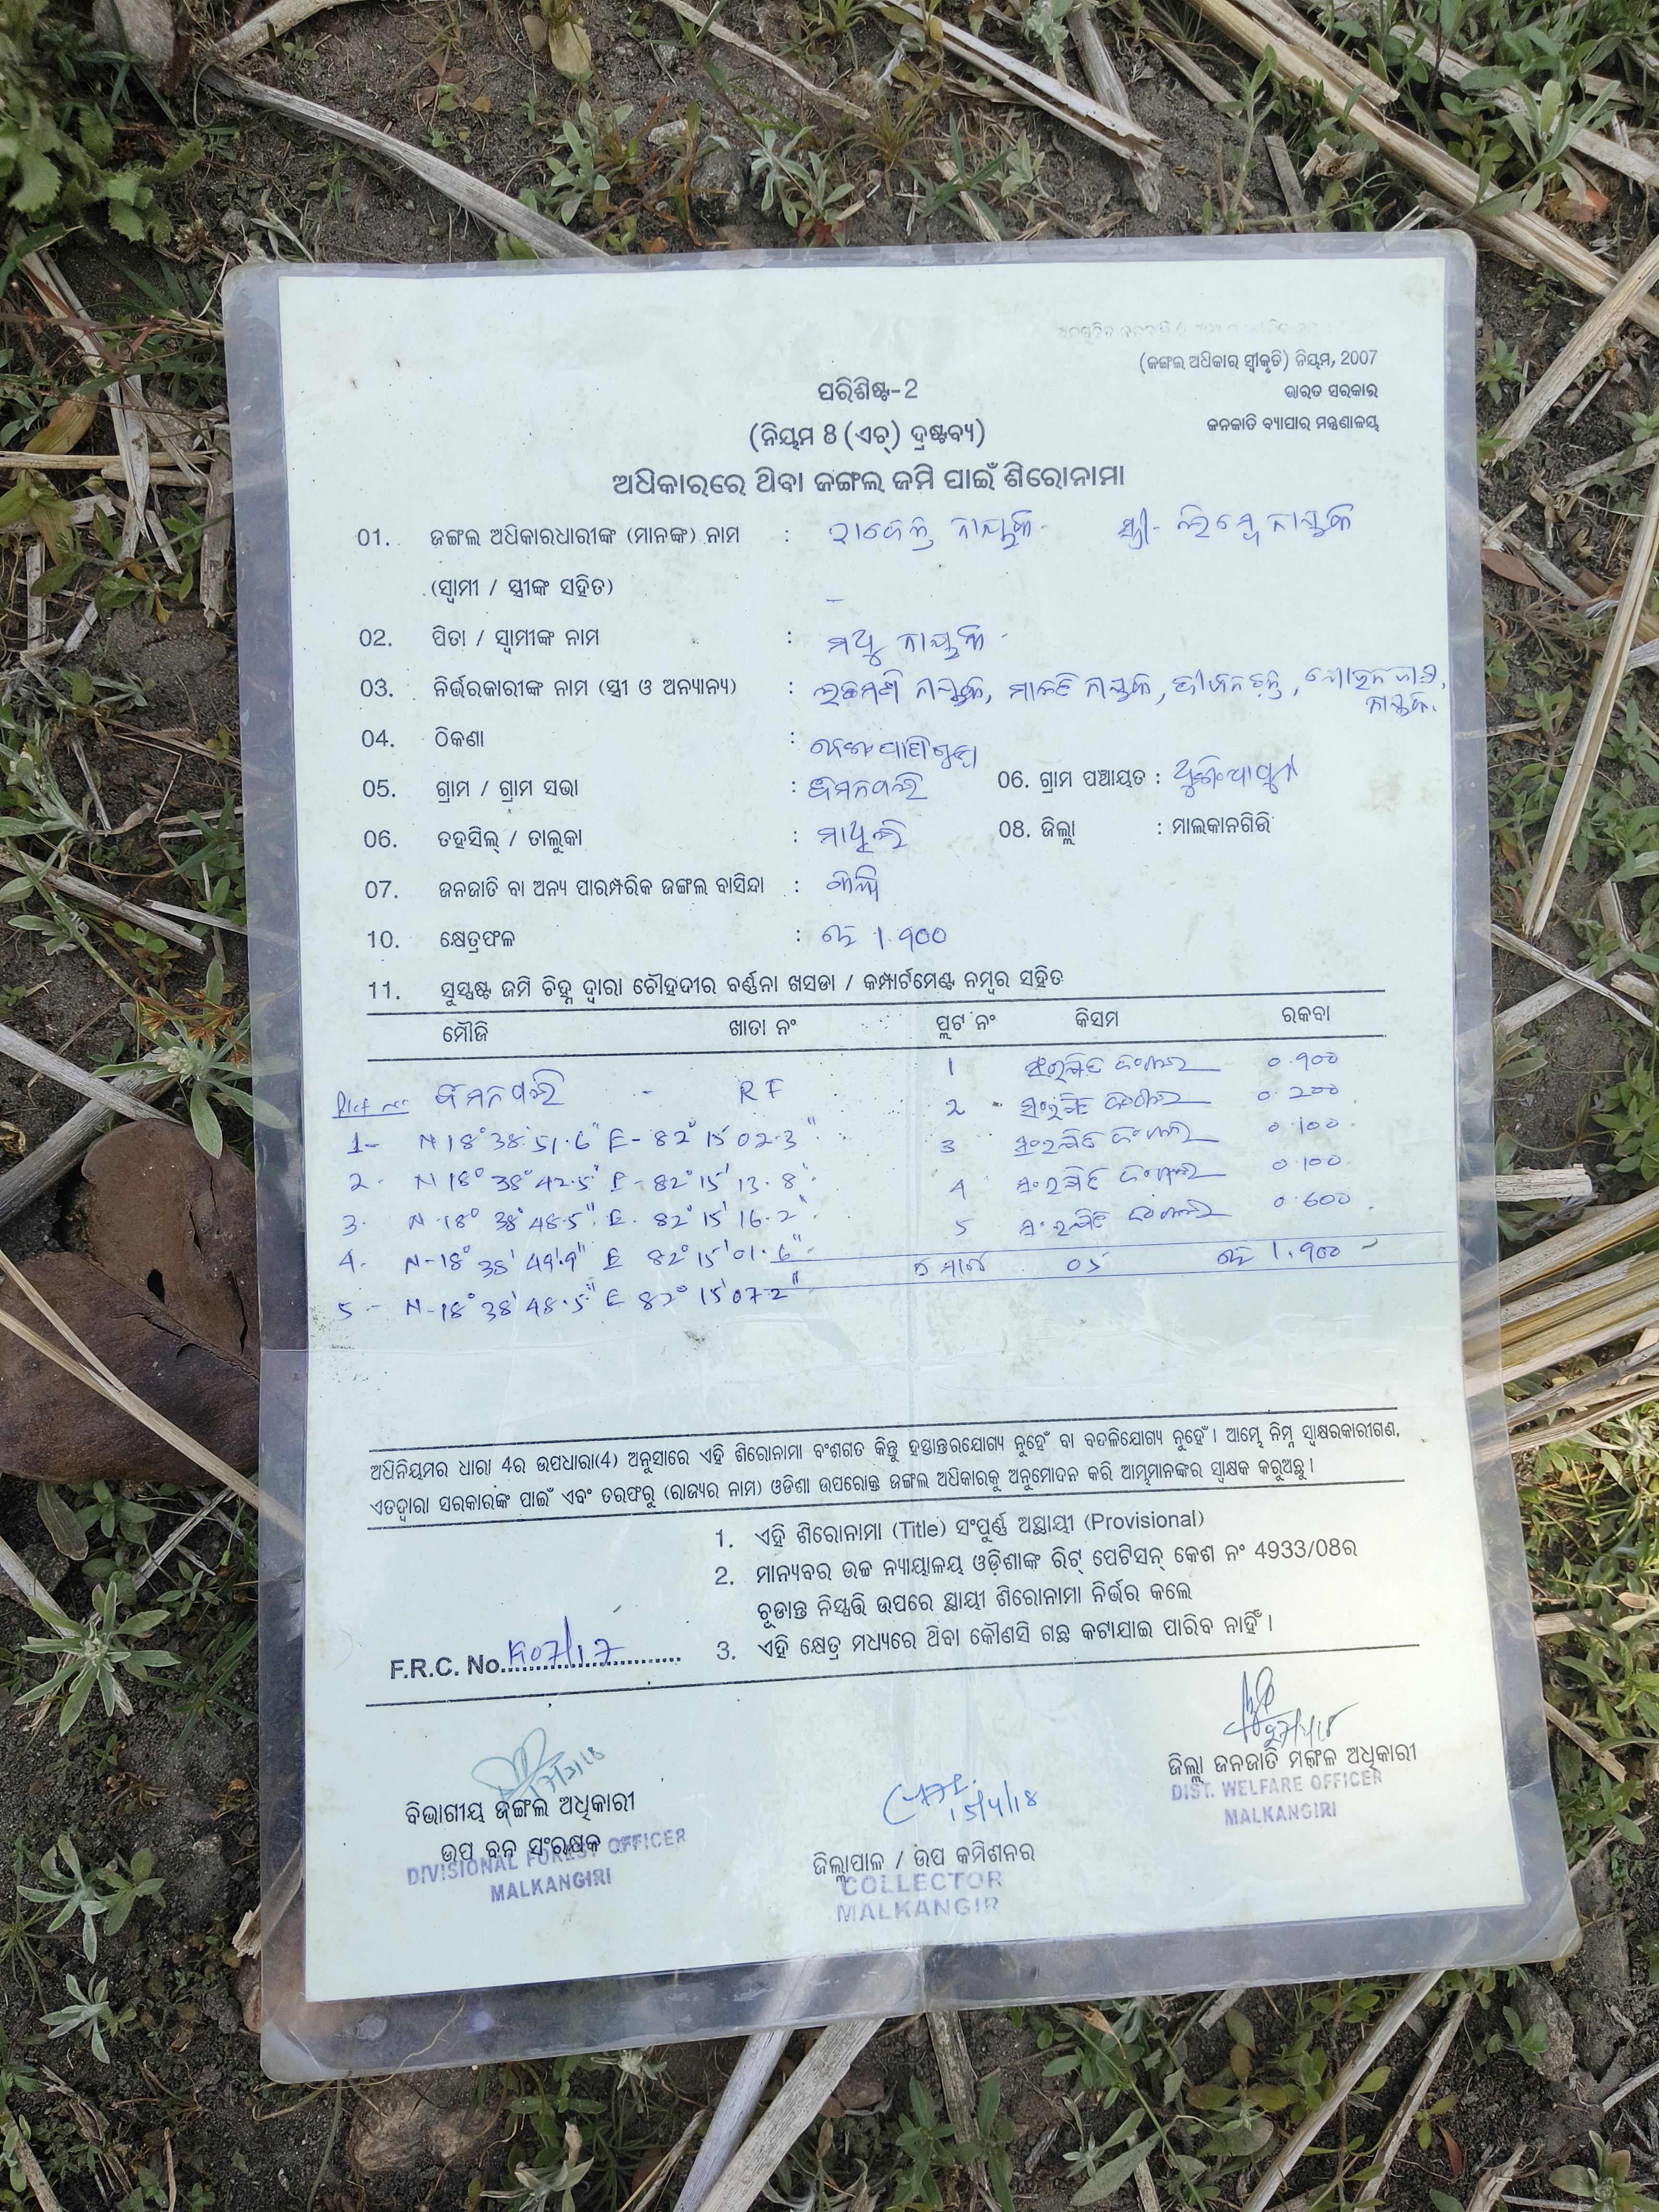 (ଜଙ୍ଗଲ ଅଧିକାର ସ୍ୱୀକୃତି) ନିୟମ, 2007
ପରିଶିଷ୍ଟ-2
ଭାରତ ସରକାର
(ନିୟମ 8 (ଏଚ୍) ଦ୍ରଷ୍ଟବ୍ୟ)
ଜନଜାତି ବ୍ୟାପାର ମନ୍ତ୍ରଣାଳୟ
ଅଧିକାରରେ ଥିବା ଜଙ୍ଗଲ ଜମି ପାଇଁ ଶିରୋନାମା
01. ଜଙ୍ଗଲ ଅଧିକାରଧାରୀଙ୍କ (ମାନଙ୍କ) ନାମ : ନାୟକ ସ୍ତ୍ରୀ- ନାୟକ
(ସ୍ୱାମୀ / ସ୍ତ୍ରୀଙ୍କ ସହିତ)
02. ପିତା / ସ୍ୱାମୀଙ୍କ ନାମ : ମଧୁ ନାୟକ
03. ନିର୍ଭରକାରୀଙ୍କ ନାମ (ସ୍ତ୍ରୀ ଓ ଅନ୍ୟାନ୍ୟ) : ନାୟକ, ନାୟକ, ନାୟକ.
04. ଠିକଣା :
05. ଗ୍ରାମ / ଗ୍ରାମ ସଭା : 06. ଗ୍ରାମ ପଞ୍ଚାୟତ :
06. ତହସିଲ୍ / ତାଲୁକା : ମାଥିଲି 08. ଜିଲ୍ଲା : ମାଲକାନଗିରି
07. ଜନଜାତି ବା ଅନ୍ୟ ପାରମ୍ପରିକ ଜଙ୍ଗଲ ବାସିନ୍ଦା :
10. କ୍ଷେତ୍ରଫଳ : ହେ 1.900
11. ସୁସ୍ପଷ୍ଟ ଜମି ଚିହ୍ନ ଦ୍ୱାରା ଚୌହଦୀର ବର୍ଣ୍ଣନା ଖସଡା / କମ୍ପାର୍ଟମେଣ୍ଟ ନମ୍ବର ସହିତ
ମୌଜି ଖାତା ନଂ ପ୍ଲଟ ନଂ କିସମ ରକବା
1 ସଂରକ୍ଷିତ ଜଂଗଲ 0.900
Plot no - RF 2 ସଂରକ୍ଷିତ ଜଂଗଲ 0.200
1- N 18° 38' 51.6" E- 82° 15' 02.3" 3 ସଂରକ୍ଷିତ ଜଂଗଲ 0.100
2- N 18° 38' 42.5" E- 82° 15' 13.8" 4 ସଂରକ୍ଷିତ ଜଂଗଲ 0.100
3- N-18° 38' 48.5" E. 82° 15' 16.2" 5 ସଂରକ୍ଷିତ ଜଂଗଲ 0.600
4- N-18° 38' 49.9" E 82° 15' 01.6" ମୋଟ 05 ହେ 1.900
5- N-18° 38' 48.5" E 82° 15' 07.2"
ଅଧିନିୟମର ଧାରା 4ର ଉପଧାରା(4) ଅନୁସାରେ ଏହି ଶିରୋନାମା ବଂଶଗତ କିନ୍ତୁ ହସ୍ତାନ୍ତରଯୋଗ୍ୟ ନୁହେଁ ବା ବଦଳିଯୋଗ୍ୟ ନୁହେଁ। ଆମ୍ଭେ ନିମ୍ନ ସ୍ୱାକ୍ଷରକାରୀଗଣ,
ଏତଦ୍ୱାରା ସରକାରଙ୍କ ପାଇଁ ଏବଂ ତରଫରୁ (ରାଜ୍ୟର ନାମ) ଓଡିଶା ଉପରୋକ୍ତ ଜଙ୍ଗଲ ଅଧିକାରକୁ ଅନୁମୋଦନ କରି ଆମ୍ଭମାନଙ୍କର ସ୍ୱାକ୍ଷକ କରୁଅଛୁ।
1. ଏହି ଶିରୋନାମା (Title) ସଂପୂର୍ଣ୍ଣ ଅସ୍ଥାୟୀ (Provisional)
2. ମାନ୍ୟବର ଉଚ୍ଚ ନ୍ୟାୟାଳୟ ଓଡ଼ିଶାଙ୍କ ରିଟ୍ ପେଟିସନ୍ କେଶ ନଂ 4933/08ର
ଚୂଡାନ୍ତ ନିସ୍ପତ୍ତି ଉପରେ ସ୍ଥାୟୀ ଶିରୋନାମା ନିର୍ଭର କଲେ
3. ଏହି କ୍ଷେତ୍ର ମଧ୍ୟରେ ଥିବା କୌଣସି ଗଛ କଟାଯାଇ ପାରିବ ନାହିଁ।
F.R.C. No. 1907/17
ଜିଲ୍ଲା ଜନଜାତି ମଙ୍ଗଳ ଅଧିକାରୀ
DIST. WELFARE OFFICER
MALKANGIRI
ବିଭାଗୀୟ ଜଙ୍ଗଲ ଅଧିକାରୀ
ଉପ ବନ ସଂରକ୍ଷକ
DIVISIONAL FOREST OFFICER
MALKANGIRI
15/4/18
ଜିଲ୍ଲାପାଳ / ଉପ କମିଶନର
COLLECTOR
MALKANGIR